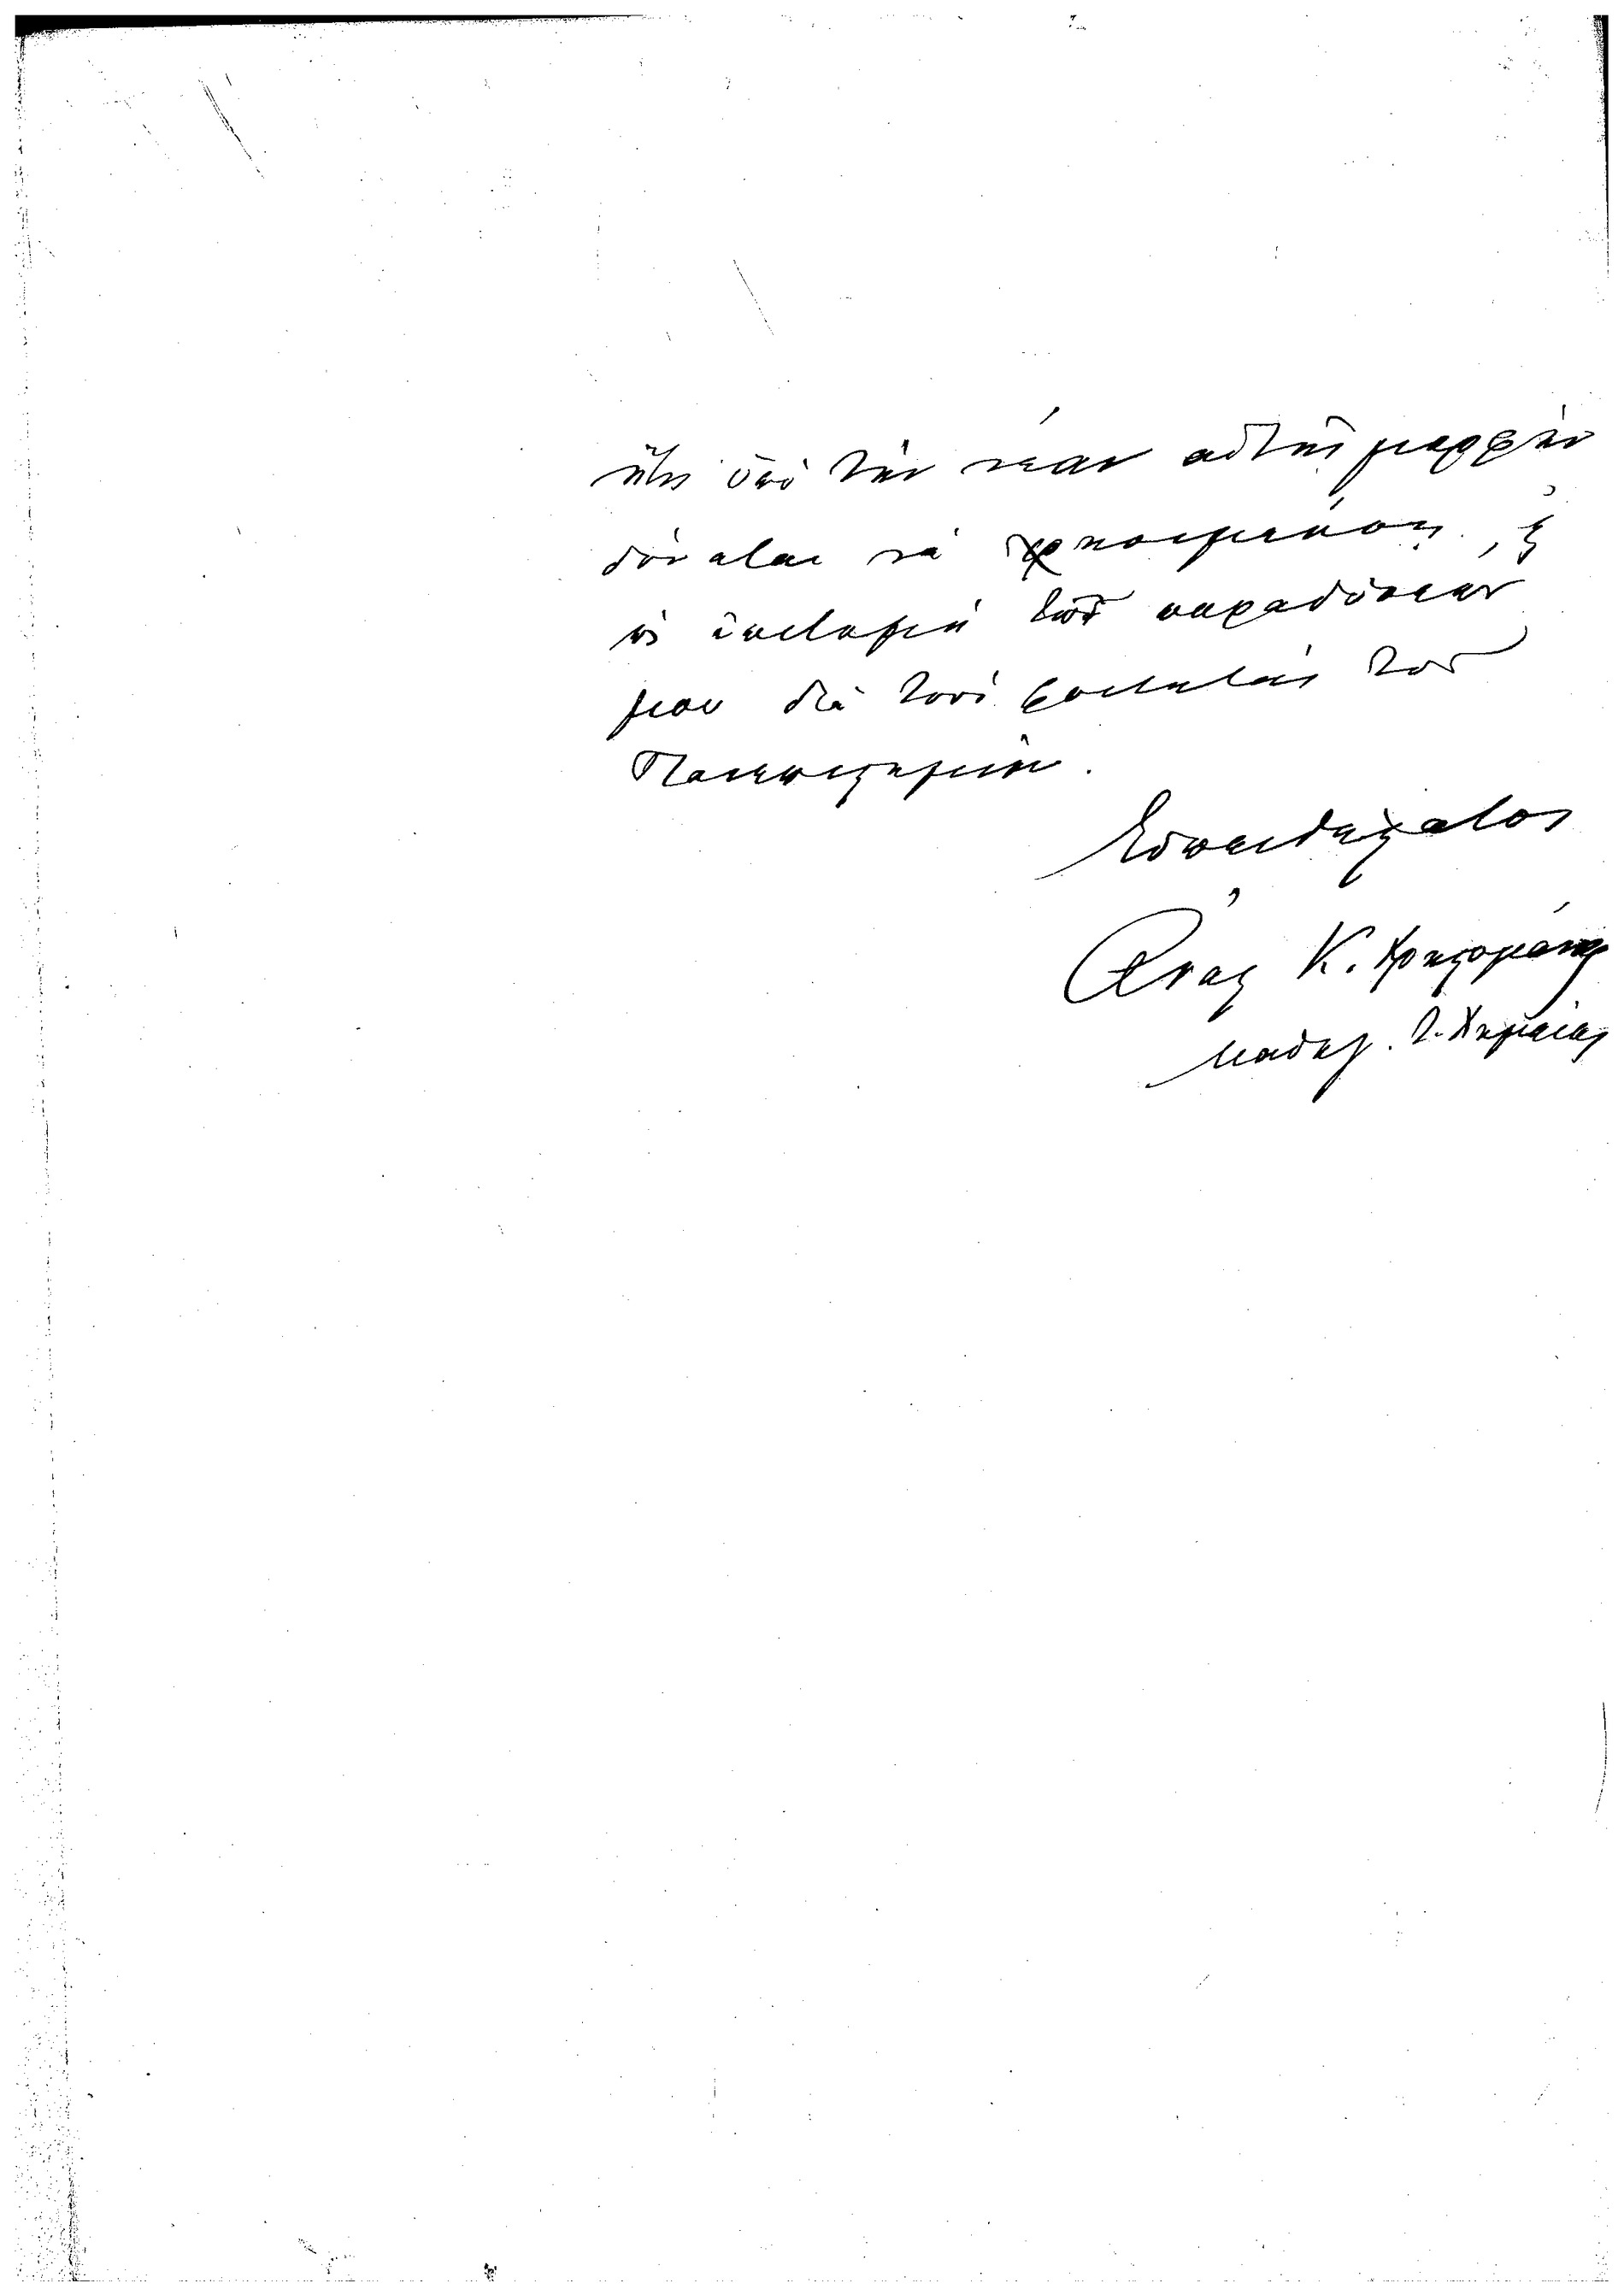 ἥτις ὑπὸ τὴν νέαν αὐτῆς μορφὴν
δύναται νὰ χρησιμεύσῃ, ὡς
ἡ ἐπιτομὴ τῶν παραδόσεών
μου διὰ τοὺς φοιτητὰς τοῦ
Πανεπιστημίου.
Εὐπειθέστατος
Ἀναστ. Κ. Χρηστομάνος
καθηγ. τ. Χημείας